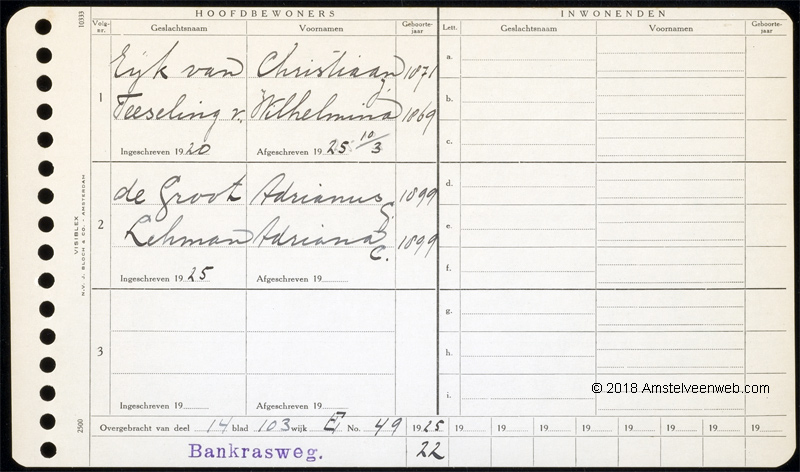 HOOFDBEWONERS INWONENDEN
Volg-nr. Geslachtsnaam Voornamen Geboorte-jaar Lett. Geslachtsnaam Voornamen Geboorte-jaar
10333
1
Eijk van Christiaan J. 1871
Teeseling v. Wilhelmina 1869
Ingeschreven 1920 Afgeschreven 1925 10/3
2
de Groot Adrianus G. 1899
Lehman Adriana C. 1899
Ingeschreven 1925 Afgeschreven 19
3
Ingeschreven 19 Afgeschreven 19
a.
b.
c.
d.
e.
f.
g.
h.
i.
VISIBLEX
N.V. J. BLOCH & CO. - AMSTERDAM
2500
© 2018 Amstelveenweb.com
Overgebracht van deel 14 blad 103 wijk E No. 49 1925 19 19 19 19 19 19 19 19
Bankrasweg. 22